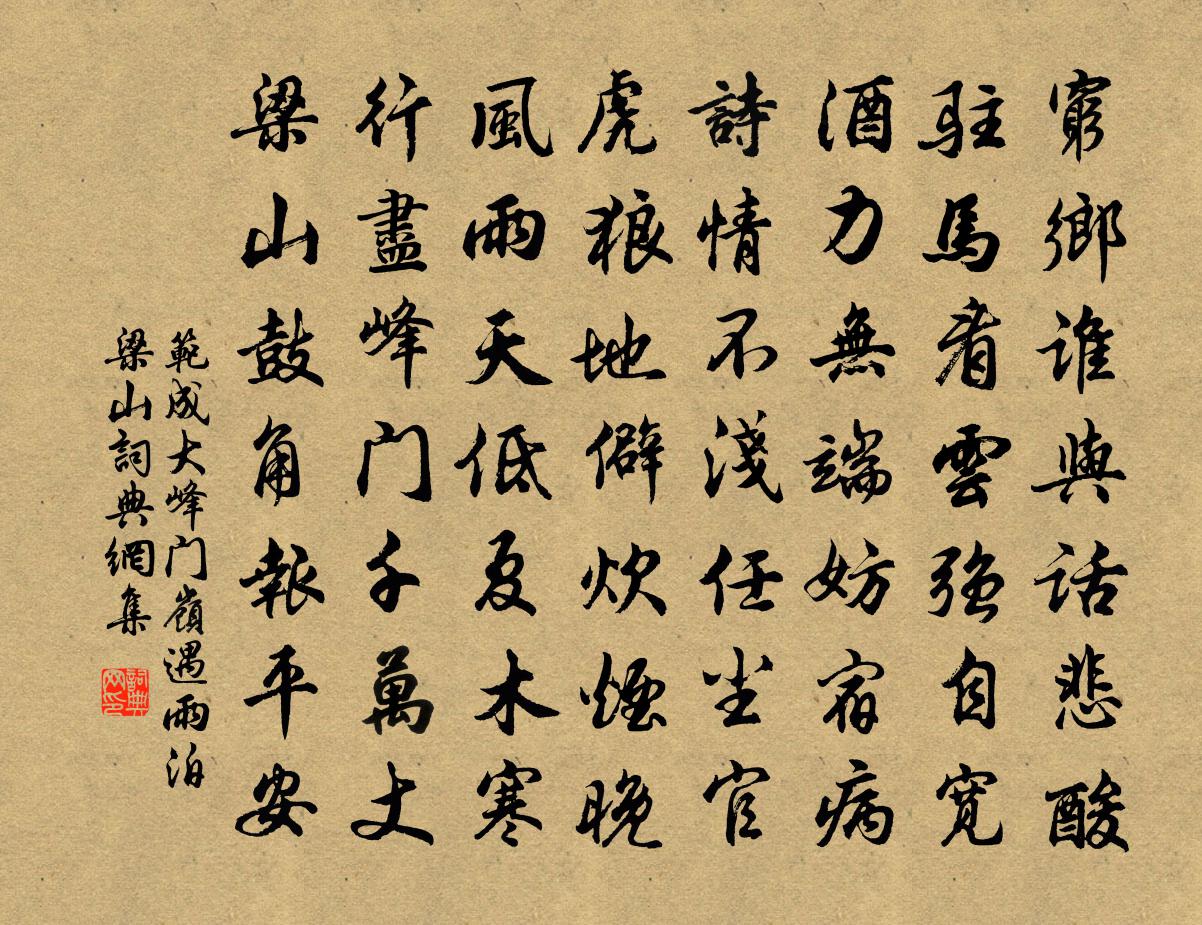 窮鄉誰與話悲酸
駐馬看雲強自寬
酒力無端妨宿病
詩情不淺任尘官
虎狼地僻炊煙晚
風雨天低夏木寒
行盡峰门千萬丈
梁山鼓角報平安
範成大峰门嶺遇雨泊
梁山詞典網集
詞典网印